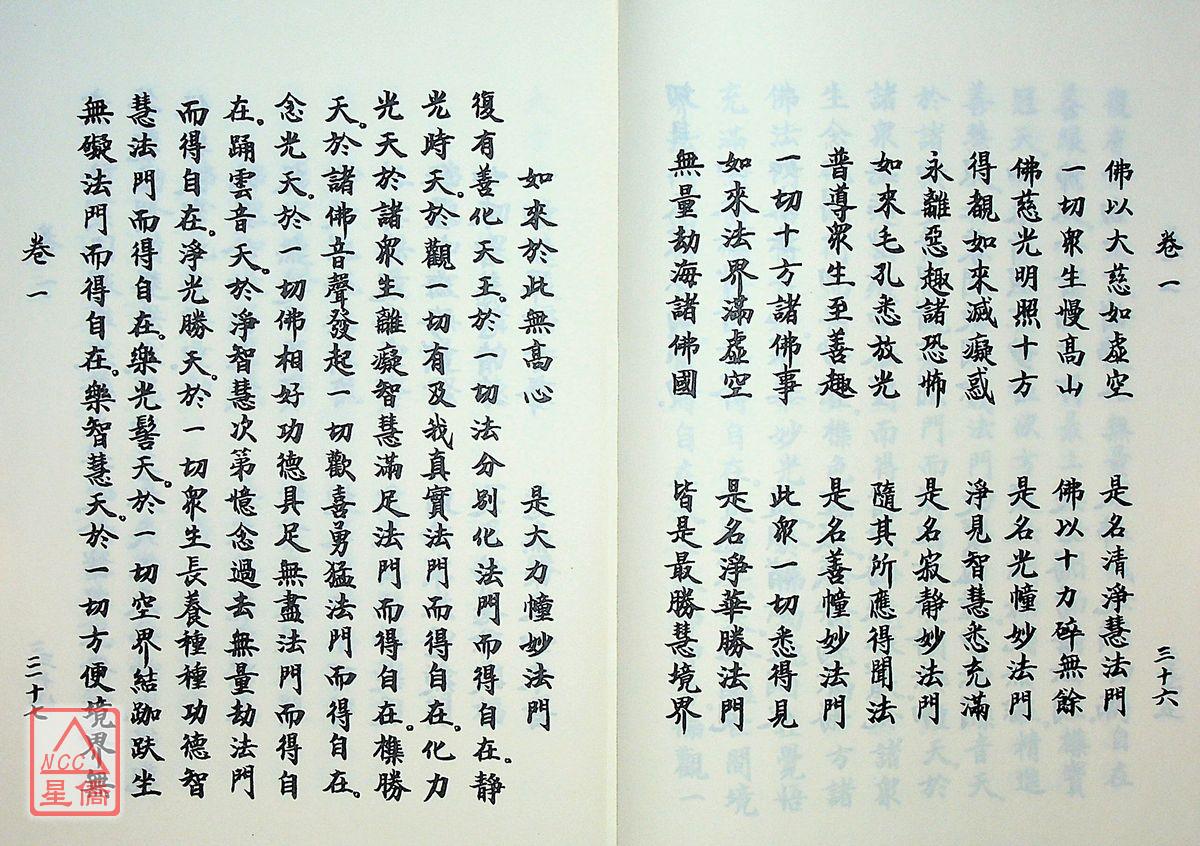 卷一
三十六
佛以大慈如虛空　是名清淨慧法門
一切眾生慢高山　佛以十力碎無餘
佛慈光明照十方　是名光幢妙法門
得覩如來滅癡惑　淨見智慧悉充滿
永離惡趣諸恐怖　是名寂靜妙法門
如來毛孔悉放光　隨其所應得聞法
普導眾生至善趣　是名善幢妙法門
一切十方諸佛事　此眾一切悉得見
如來法界滿虛空　是名淨華勝法門
無量劫海諸佛國　皆是最勝慧境界
如來於此無高心　是大力幢妙法門
復有善化天王。於一切法分別化法門而得自在。靜
光時天。於觀一切有及我真實法門而得自在。化力
光天於諸眾生離癡智慧滿足法門而得自在。樵勝
天。於諸佛音聲發起一切歡喜勇猛法門而得自在。
念光天。於一切佛相好功德具足無盡法門而得自
在。踊雲音天。於淨智慧次第憶念過去無量劫法門
而得自在。淨光勝天。於一切眾生長養種種功德智
慧法門而得自在。樂光髻天。於一切空界結跏趺坐
無礙法門而得自在。樂智慧天。於一切方便境界無
卷一
三十七
NCC
星僑